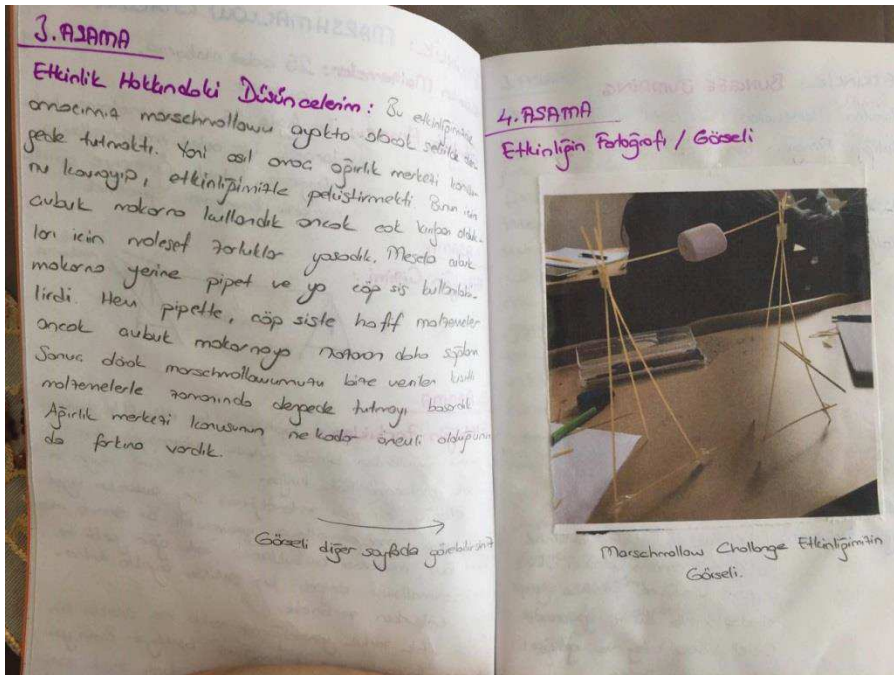 3. AŞAMA
Etkinlik Hakkındaki Düşüncelerim : Bu etkinliğimizde
amacımız marschmallowu ayakta olacak şekilde den
gede tutmaktı. Yani asıl amaç ağırlık merkezi konusu
nu kavrayıp, etkinliğimizle pekiştirmekti. Bunun için
çubuk makarna kullandık ancak çok kırılgan olduk
ları için malesef zorluklar yaşadık. Mesela çubuk
makarna yerine pipet ve ya çöp şiş kullanılabi-
lirdi. Hem pipette, çöp şişte hafif malzemeler
ancak çubuk makarnaya nazaran daha sağlam
Sonuç olarak marschmallowumuzu bize verilen kısıtlı
malzemelerle zamanında dengede tutmayı başardık
Ağırlık merkezi konusunun ne kadar önemli olduğunun
da farkına vardık.
Görseli diğer sayfada görebilirsiniz
4. AŞAMA
Etkinliğin Fotoğrafı / Görseli
Marschmallow Challenge Etkinliğimizin
Görseli.